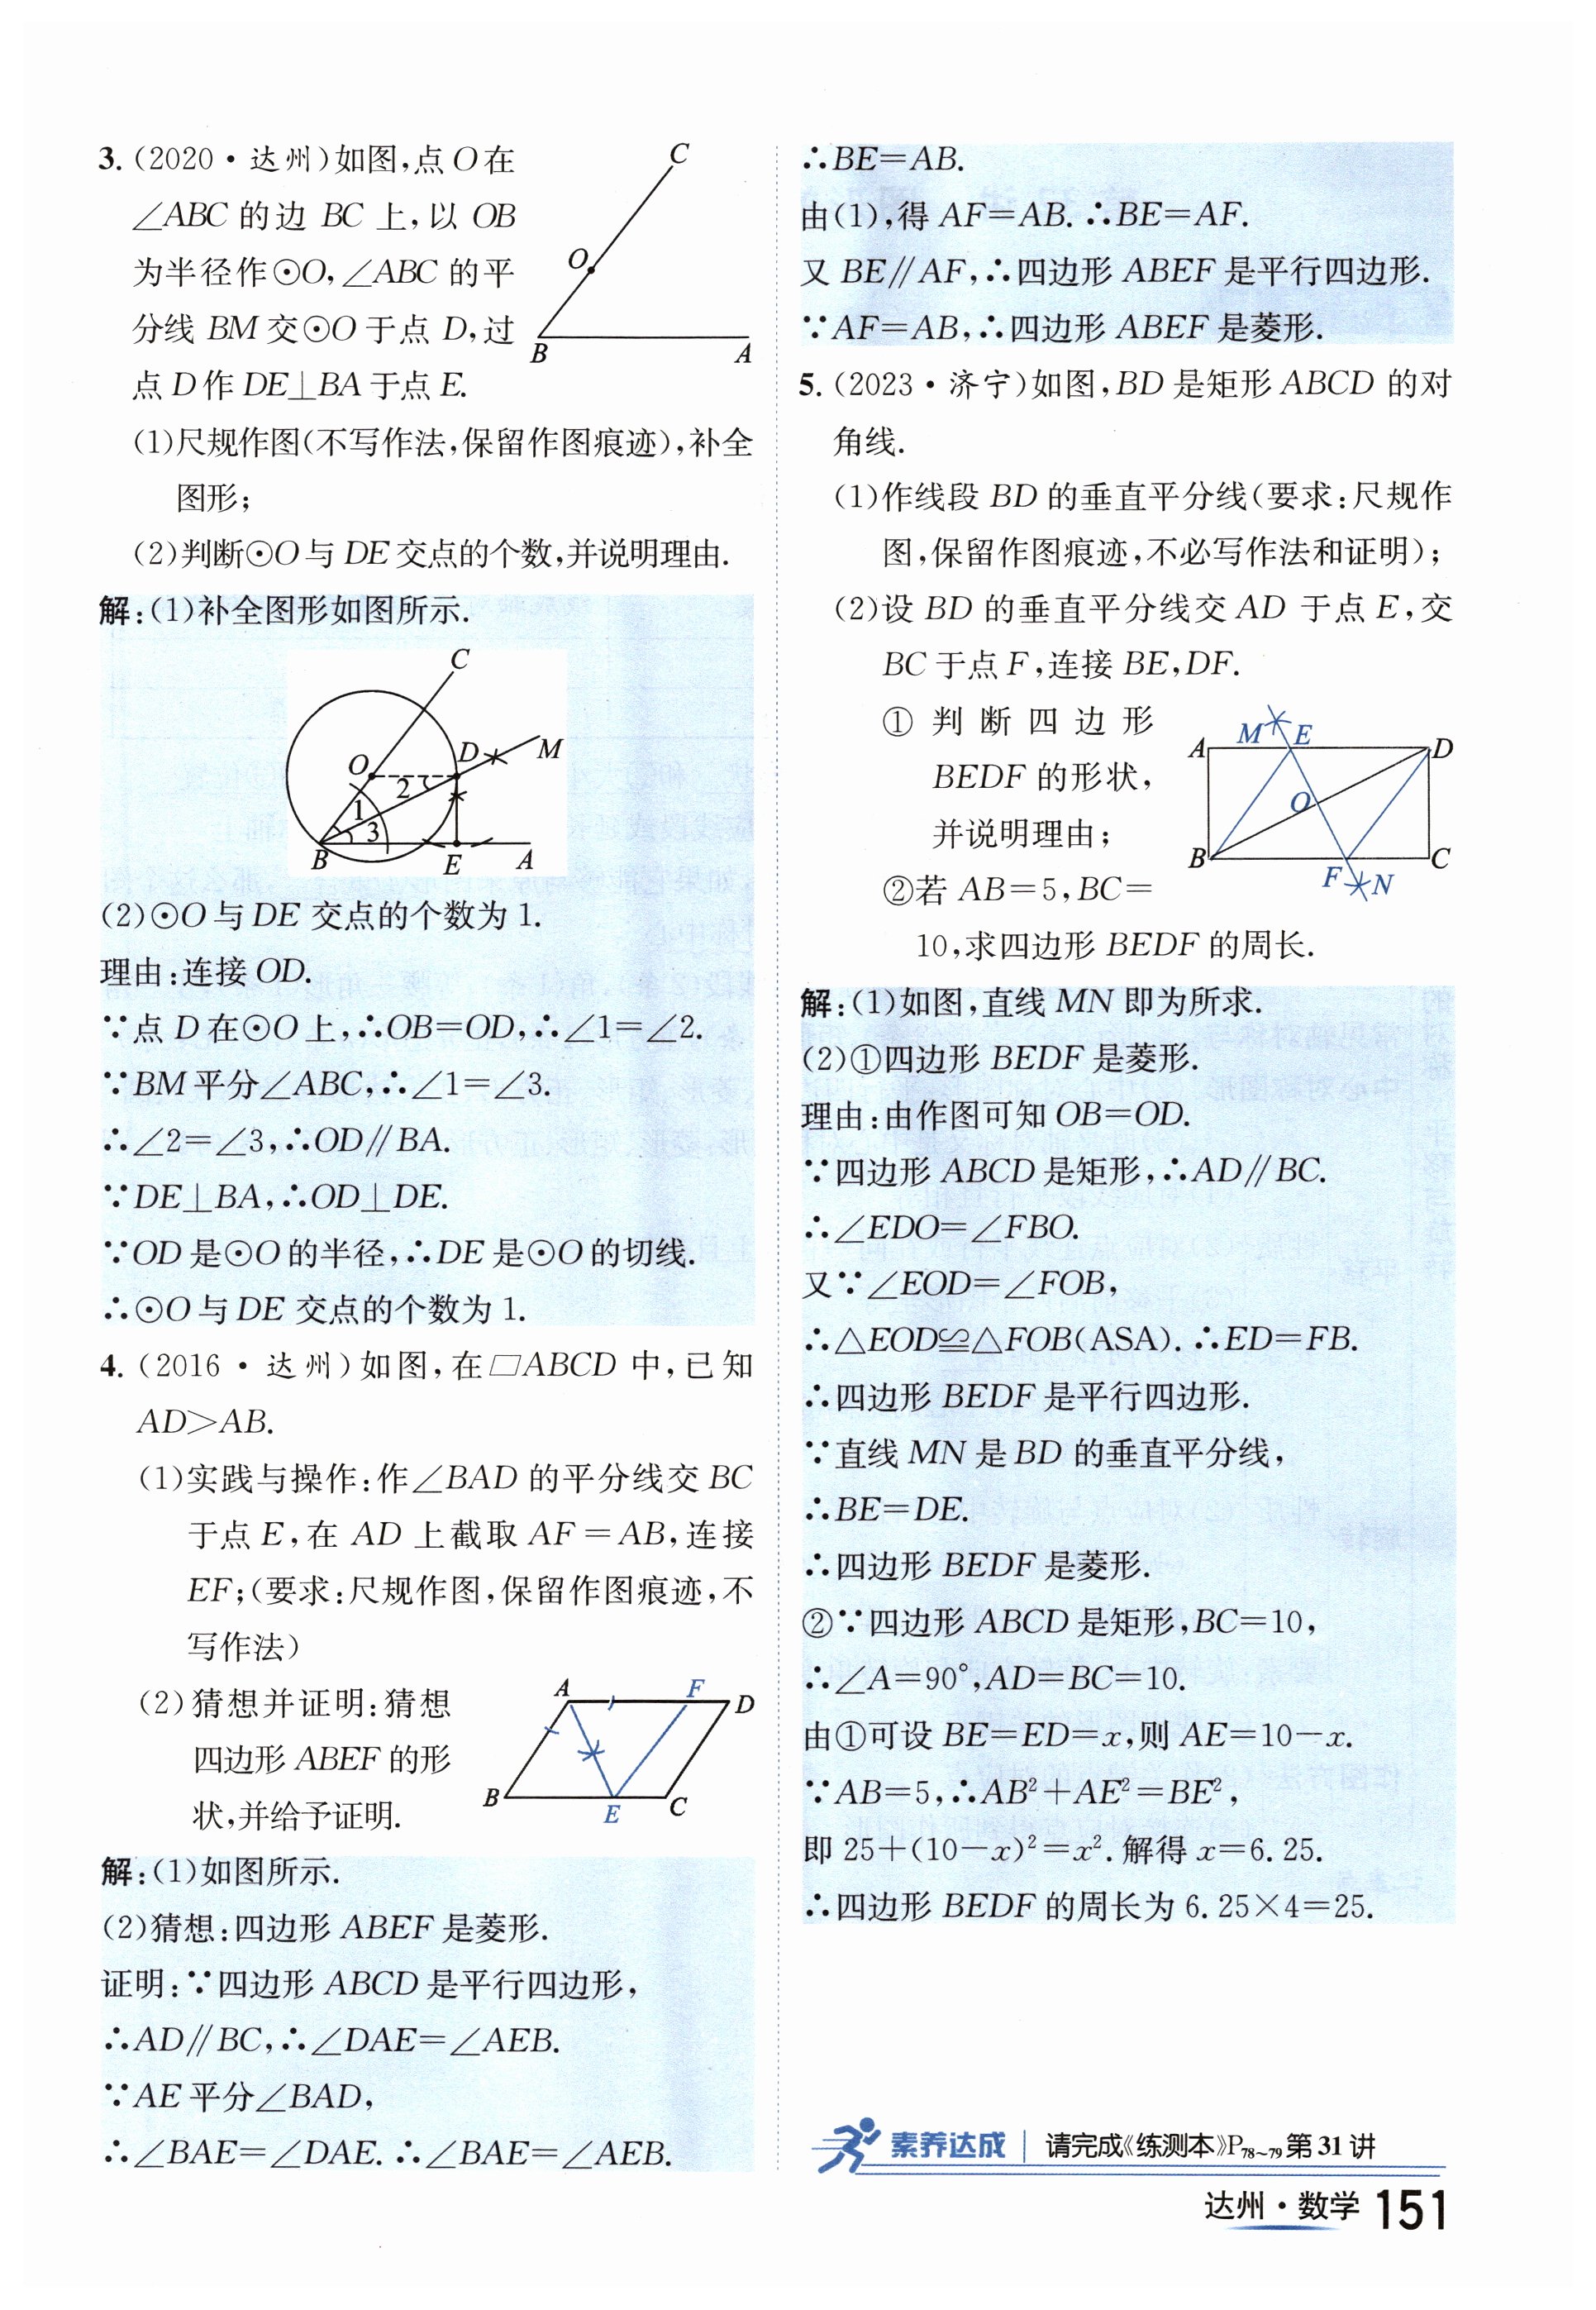 3.(2020·达州)如图,点O在
∠ABC 的边 BC 上,以 OB
为半径作⊙O,∠ABC 的平
分线 BM 交⊙O于点 D,过
点 D作 DE⊥BA于点E.
(1)尺规作图(不写作法,保留作图痕迹),补全
图形;
(2)判断⊙O与 DE交点的个数,并说明理由.
C
O
B
A
解:(1)补全图形如图所示.
C
D
M
O
2
1
3
B
E
A
(2)⊙O与DE 交点的个数为1.
理由:连接OD.
∵点 D在⊙O上,∴OB=OD,∴∠1=∠2.
∵BM平分∠ABC,∴∠1=∠3.
∴∠2=∠3,∴OD∥BA.
∵DE⊥BA,∴OD⊥DE.
∵OD是⊙O的半径,∴DE是⊙O的切线.
∴⊙O与DE 交点的个数为1.
4.(2016·达州)如图,在▱ABCD 中,已知
AD>AB.
(1)实践与操作:作∠BAD 的平分线交 BC
于点E,在 AD 上截取 AF=AB,连接
EF;(要求:尺规作图,保留作图痕迹,不
写作法)
(2)猜想并证明:猜想
四边形ABEF的形
状,并给予证明.
A
F
D
B
E
C
解:(1)如图所示.
(2)猜想:四边形 ABEF 是菱形.
证明:∵四边形 ABCD是平行四边形,
∴AD∥BC,∴∠DAE=∠AEB.
∵AE平分∠BAD,
∴∠BAE=∠DAE.∴∠BAE=∠AEB.
∴BE=AB.
由(1),得 AF=AB.∴BE=AF.
又 BE∥AF,∴四边形 ABEF是平行四边形.
∵AF=AB,∴四边形 ABEF是菱形.
5.(2023·济宁)如图,BD是矩形ABCD 的对
角线.
(1)作线段 BD 的垂直平分线(要求:尺规作
图,保留作图痕迹,不必写作法和证明);
(2)设 BD 的垂直平分线交 AD 于点E,交
BC于点F,连接 BE,DF.
①判断四边形
BEDF 的形状,
并说明理由;
②若 AB=5,BC=
10,求四边形 BEDF 的周长.
A
M
E
D
O
B
F
N
C
解:(1)如图,直线 MN 即为所求.
(2)①四边形 BEDF 是菱形.
理由:由作图可知OB=OD.
∵四边形 ABCD是矩形,∴AD∥BC.
∴∠EDO=∠FBO.
又∵∠EOD=∠FOB,
∴△EOD≌△FOB(ASA).∴ED=FB.
∴四边形 BEDF 是平行四边形.
∵直线 MN 是 BD 的垂直平分线,
∴BE=DE.
∴四边形 BEDF是菱形.
②∵四边形 ABCD是矩形,BC=10,
∴∠A=90°,AD=BC=10.
由①可设 BE=ED=x,则 AE=10-x.
∵AB=5,∴AB²+AE²=BE²,
即 25+(10-x)²=x².解得x=6.25.
∴四边形 BEDF 的周长为 6.25×4=25.
素养达成 | 请完成《练测本》P78~79第31讲
达州·数学 151